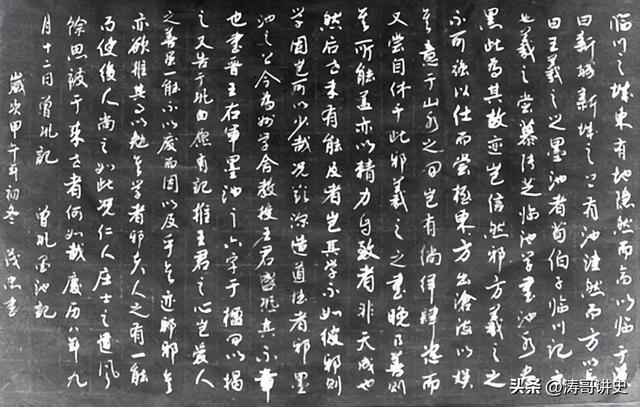 临川之城東有地隐然而高以临于溪
曰新城新城之上有池洼然而方以長
曰王羲之之墨池者荀伯子临川記云
也羲之尝慕張芝临池学書池水尽
黑此為其故迹豈信然邪方羲之之
不可强以仕而尝極東方出滄海以娱
其意于山水之间豈有徜徉肆恣而
又尝自休于此邪羲之之書晚乃善则
其所能蓋亦以精力自致者非天成也
然后世未有能及者豈其学不如彼邪则
学固豈可以少哉况欲深造道德者邪墨
池之上今為州学舍教授王君盛恐其不章
也書晋王右軍墨池之六字于楹间以揭
之又告于巩曰愿有記推王君之心豈爱人
之善虽一能不以废而因以及乎其迹邪其
亦欲推其事以勉其学者邪夫人之有一能
而使後人尚之如此况仁人庄士之遺風
馀思被于来世者何如哉慶历八年九
月十二日曾巩記 曾巩墨池記
歲次甲午年初冬 茂忠書
头条 @涛哥讲史